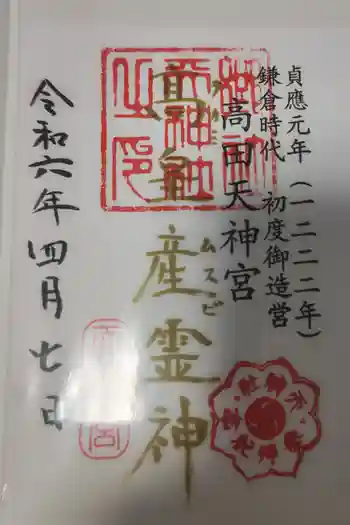 貞應元年(一二二二年)
鎌倉時代 初度御造営
高田天神宮
ムスビ
高皇産霊神
令和六年四月七日